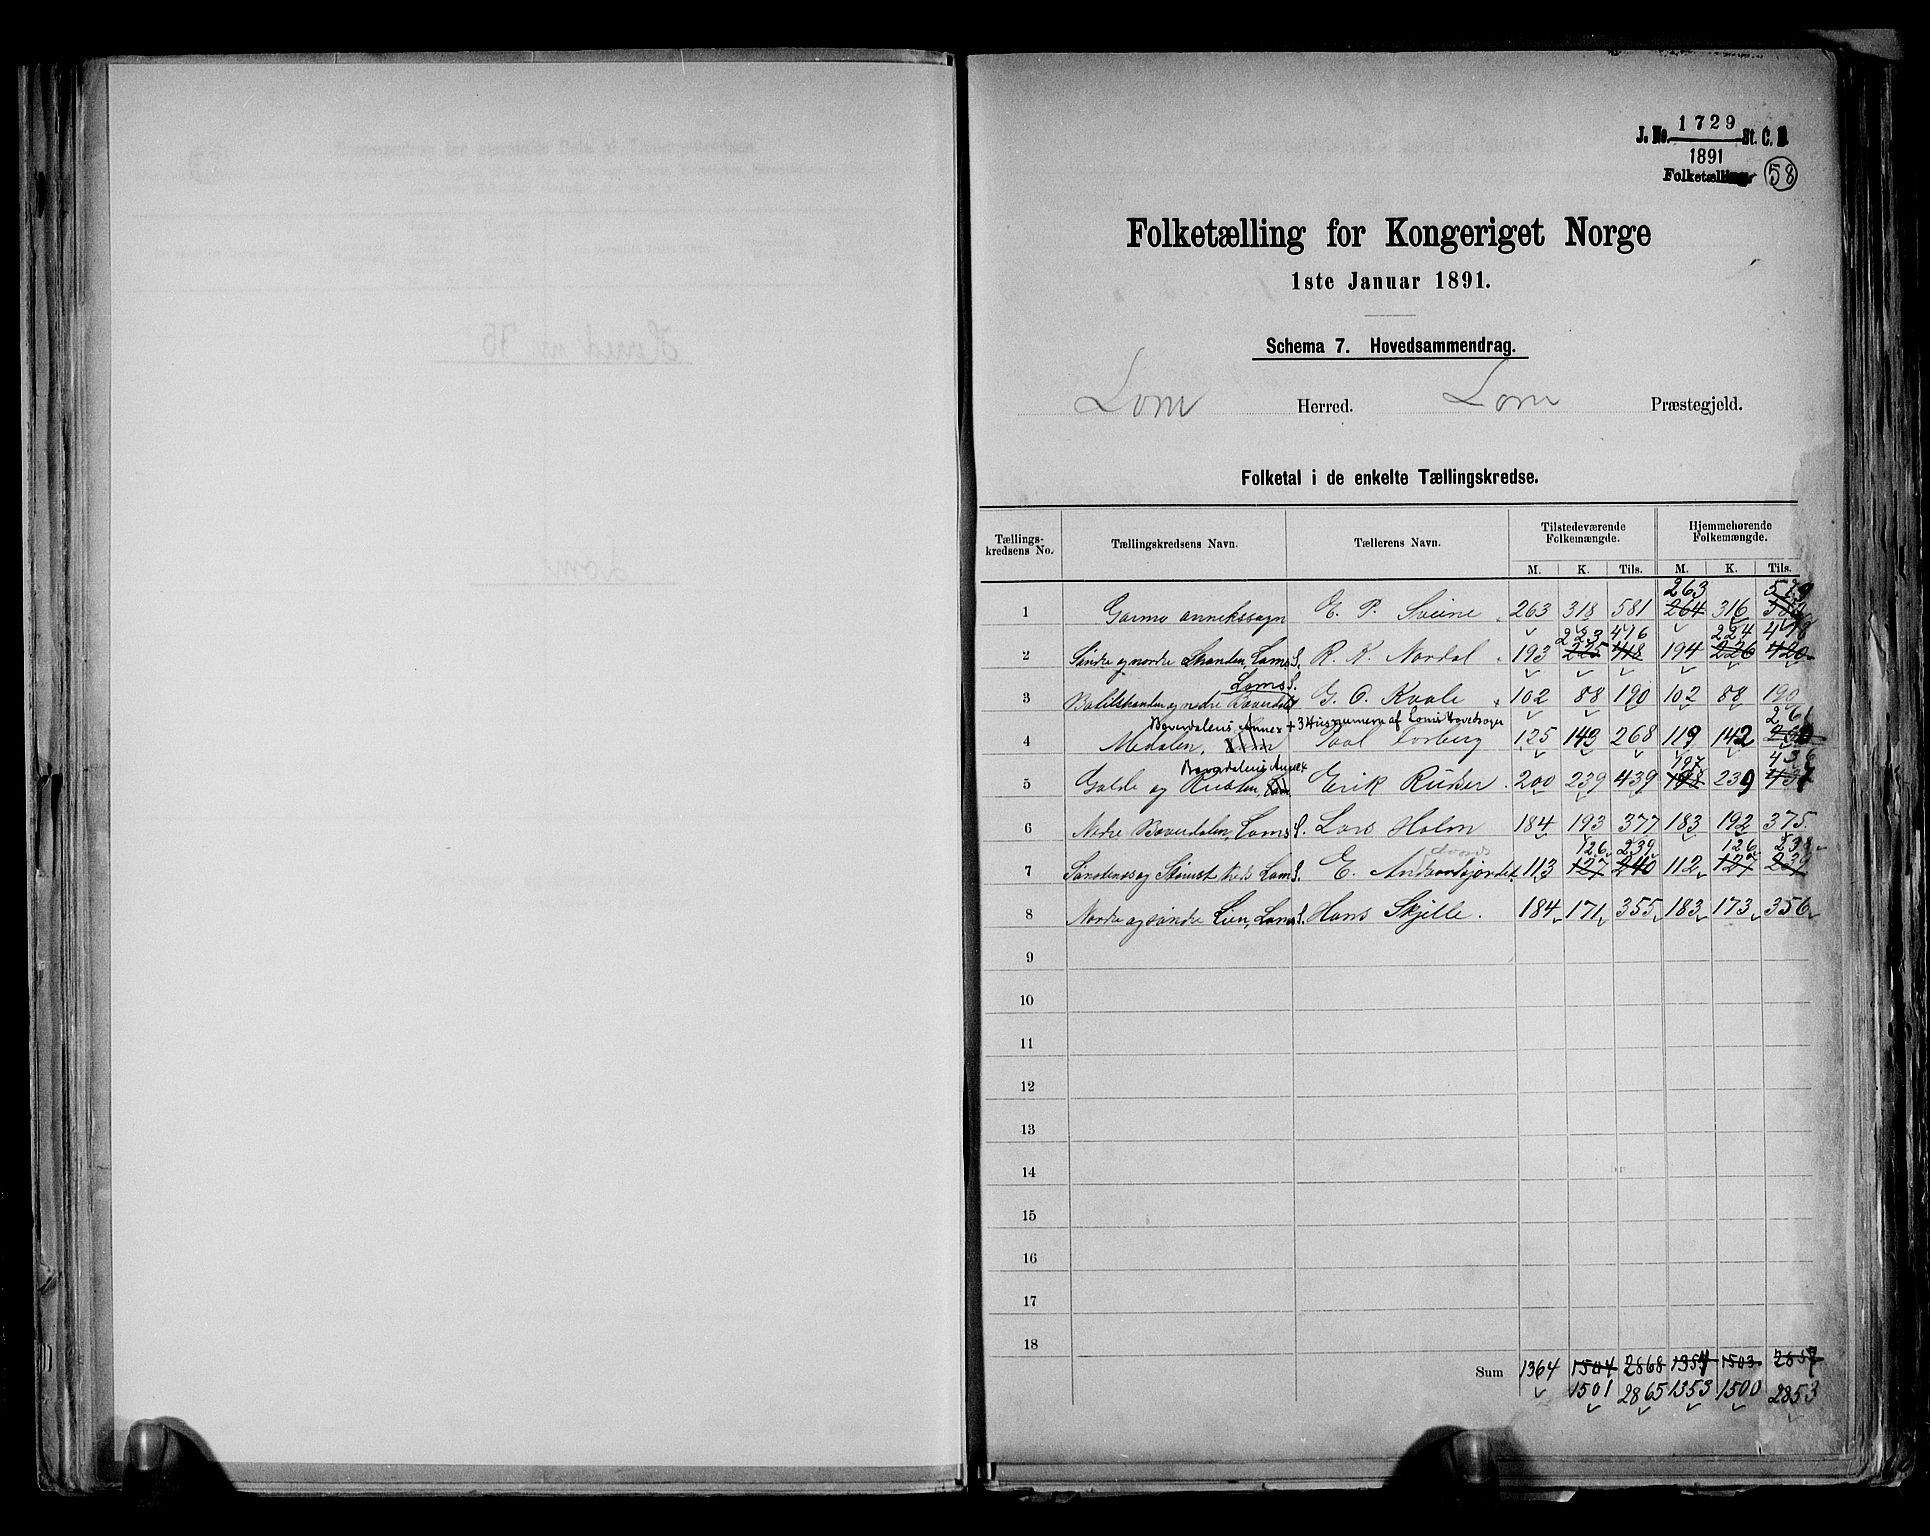 J. No. 1729 St. C. B
1891
Folketælling 58
Folketælling for Kongeriget Norge
1ste Januar 1891.
Schema 7. Hovedsammendrag.
Lom Herred. Lom Præstegjeld.
Folketal i de enkelte Tællingskredse.
Tællings-kredsens No. Tællingskredsens Navn. Tællerens Navn. Tilstedeværende Folkemængde. Hjemmehørende Folkemængde.
M. K. Tils. M. K. Tils.
263 579
1 Garmo annekssogn E. P. Sveine 263 318 581 264 316
223 416 224 418
2 Søndre og nordre Stranden, Loms S. R. K. Nordal 193 225 418 194 226 420
Loms S.
3 og nedre Bæverdalen G. O. Kvale 102 88 190 102 88 190
Bæverdalens Annex + 3 Husnumere af Loms Hovedsogn 261
4 Medalen, Lom Paal Forberg 125 143 268 119 142 260
Bæverdalens Annex 197 436
5 Galde og Rubben, Lom Erik 200 239 439 198 239 437
6 Nedre Bæverdalen, Loms S. Lars Holm 184 193 377 183 192 375
126 239 126 238
7 Loms S. E. 113 127 240 112 127 239
8 Nordre og søndre Lien, Loms S. Hans Skjelle. 184 171 355 183 173 356
9
10
11
12
13
14
15
16
17
18
Sum 1364 1504 2868 1354 1503 2857
1501 2865 1353 1500 2853